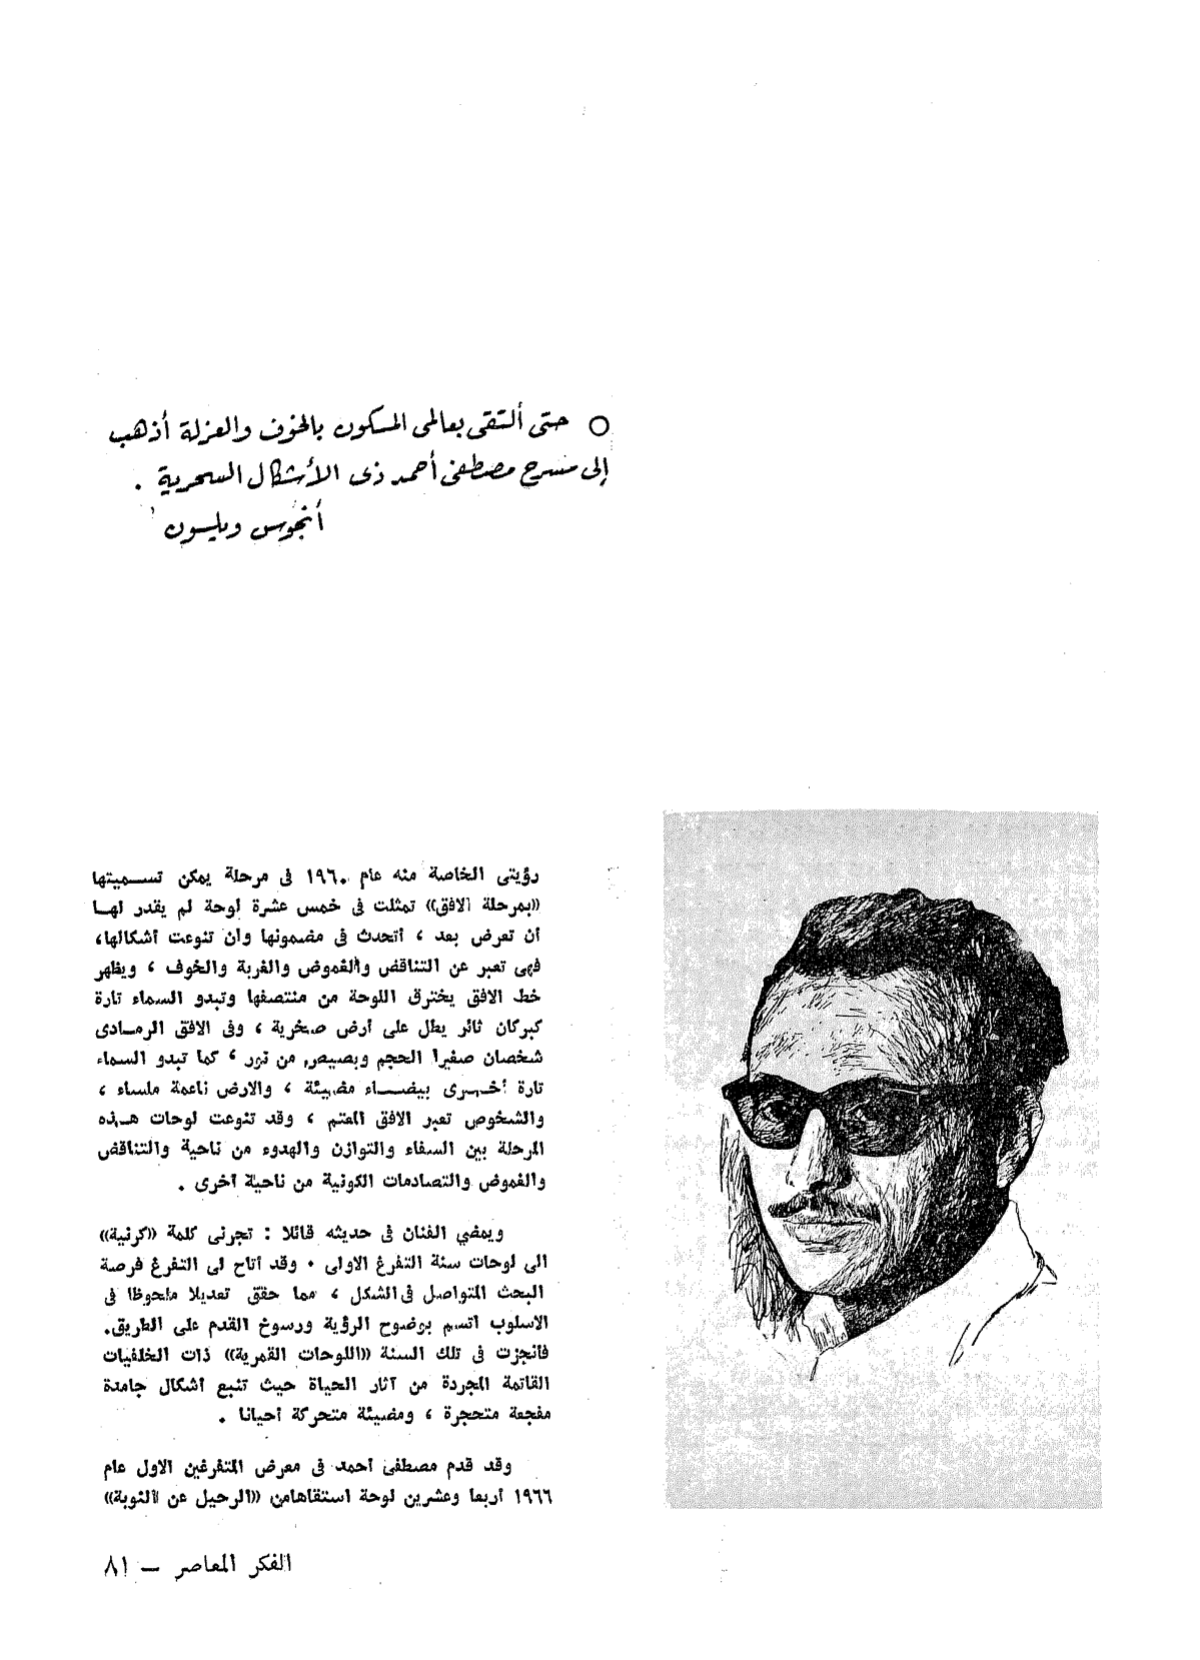 ○ حتى ألتقى بعالمى المسكون بالخوف والعزلة أذهب
إلى مسرح مصطفى أحمد ذى الأشكال السحرية .
أنجوس ويلسون
رؤيتى الخاصة منه عام ١٩٦٠ فى مرحلة يمكن تسـميتها
«بمرحلة الافق» تمثلت فى خمس عشرة لوحة لم يقدر لهـا
أن تعرض بعد ، اتحدث فى مضمونها وان تنوعت أشكالها،
فهى تعبر عن التناقض والغموض والغربة والخوف ، ويظهر
خط الافق يخترق اللوحة من منتصفها وتبدو السماء تارة
كبركان ثائر يطل على أرض صخرية ، وفى الافق الرمـادى
شخصان صغيرا الحجم وبصيص من نور ، كما تبدو السماء
تارة أخـرى بيضـاء مضيئة ، والارض ناعمة ملساء ،
والشخوص تعبر الافق المعتم ، وقد تنوعت لوحات هـذه
المرحلة بين الصفاء والتوازن والهدوء من ناحية والتناقض
والغموض والتصادمات الكونية من ناحية أخرى .
ويمضي الفنان فى حديثه قائلا : تجرنى كلمة «كونية»
الى لوحات سنة التفرغ الاولى . وقد أتاح لى التفرغ فرصة
البحث المتواصل فى الشكل ، مما حقق تعديلا ملحوظا فى
الاسلوب اتسم بوضوح الرؤية ورسوخ القدم على الطريق.
فانجزت فى تلك السنة «اللوحات القمرية» ذات الخلفيات
القاتمة المجردة من آثار الحياة حيث تنبع أشكال جامدة
مفجعة متحجرة ، ومضيئة متحركة أحيانا .
وقد قدم مصطفى أحمد فى معرض المتفرغين الاول عام
١٩٦٦ أربعا وعشرين لوحة استقاهامن «الرحيل عن النوبة»
الفكر المعاصر – ٨١